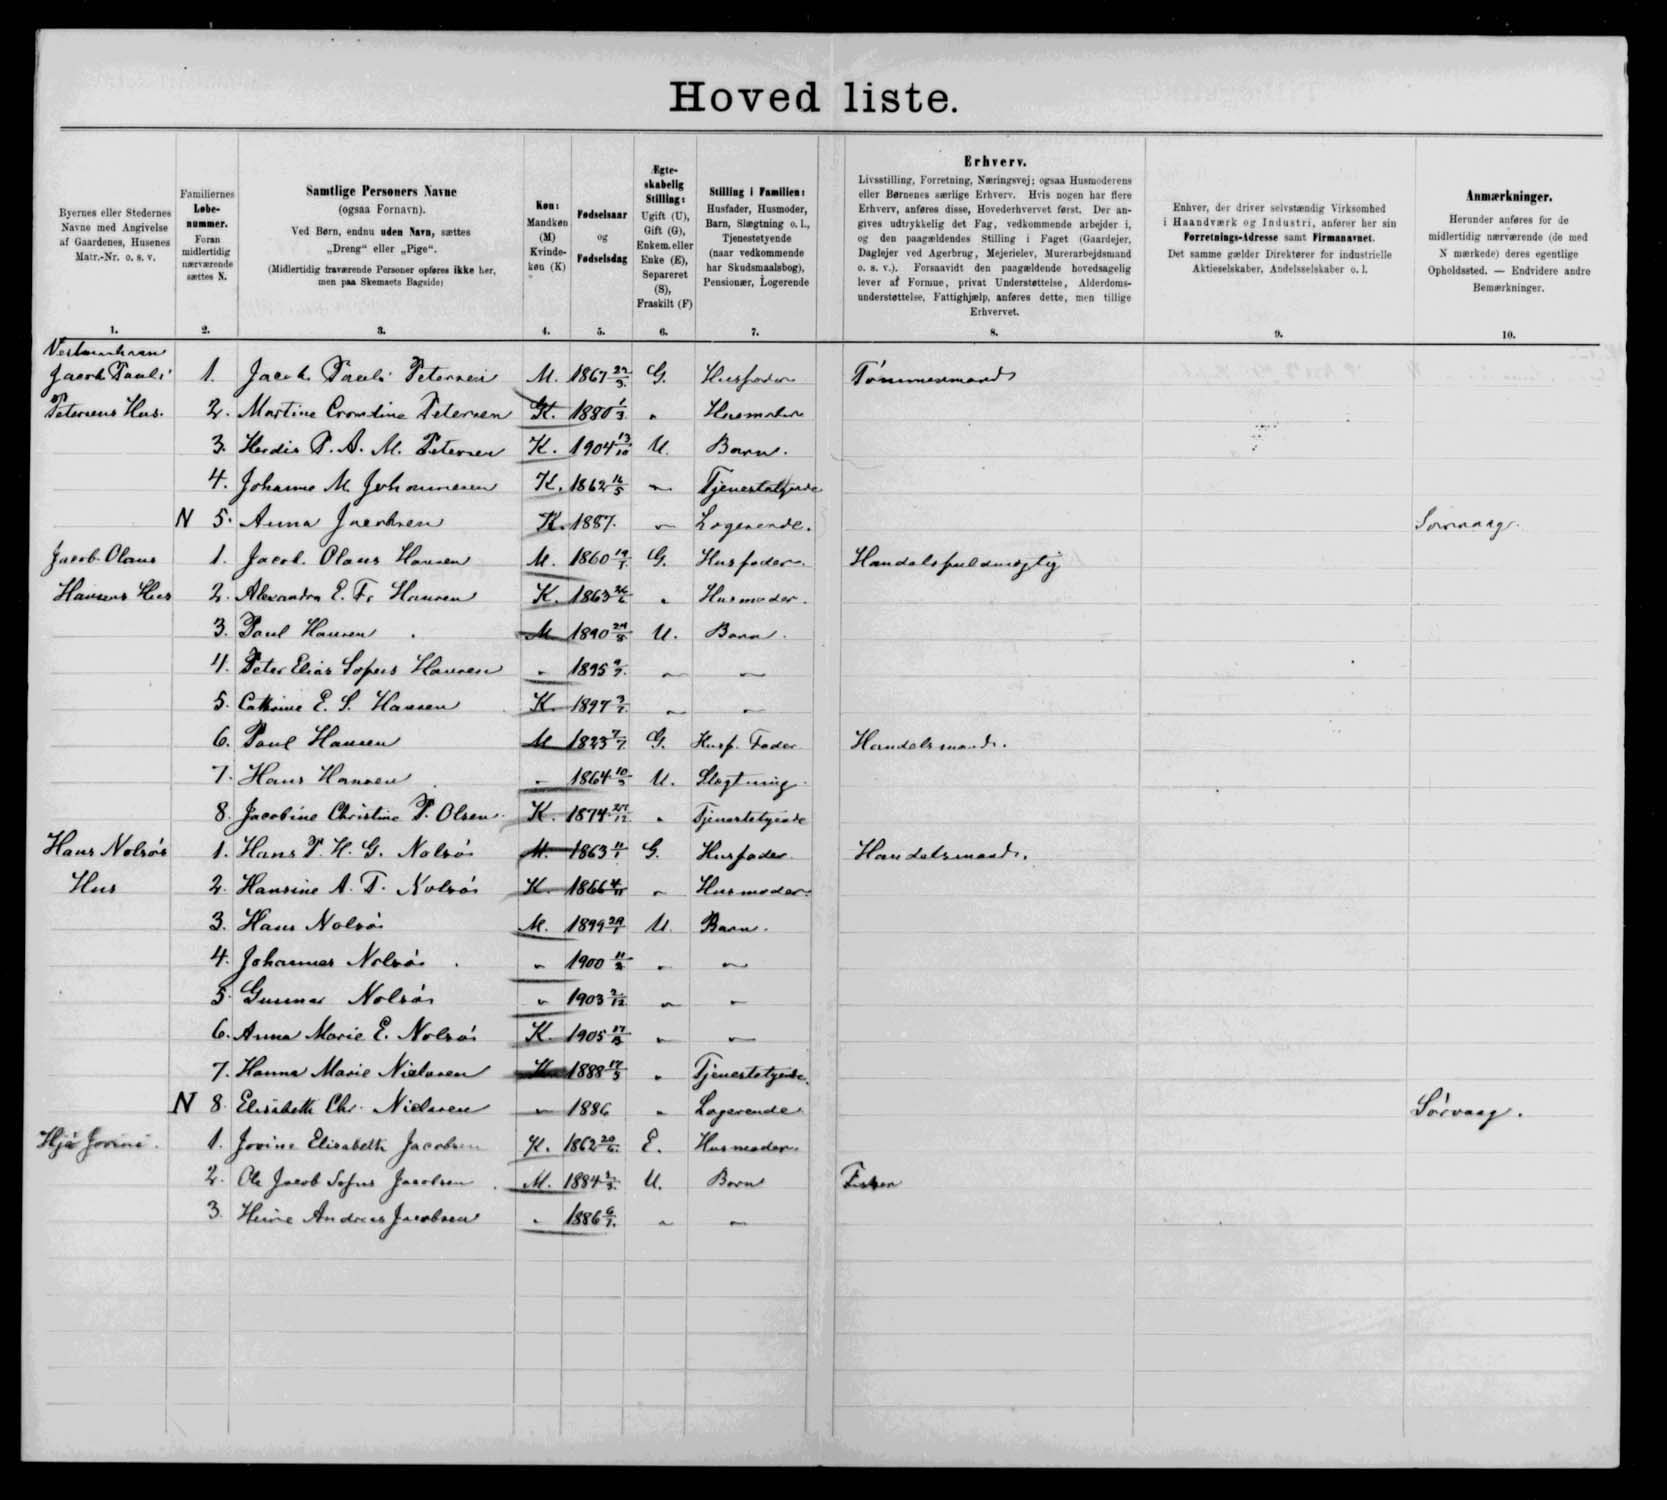 Hovedliste.
Byernes eller Stedernes
Navne med Angivelse
af Gaardenes, Husenes
Matr.-Nr. o. s. v.
1.
Familiernes
Løbe-
nummer.
Foran
midlertidig
nærværende
sættes N.
2.
Samtlige Personers Navne
(ogsaa Fornavn).
Ved Børn, endnu uden Navn, sættes
„Dreng" eller „Pige".
(Midlertidig fraværende Personer opføres ikke her,
men paa Skemaets Bagside)
3.
Køn:
Mandkøn
(M)
Kvinde-
køn (K)
4.
Fødselsaar
og
Fødselsdag
5.
Ægte-
skabelig
Stilling:
Ugift (U),
Gift (G),
Enkem. eller
Enke (E),
Separeret
(S),
Fraskilt (F)
6.
Stilling i Familien:
Husfader, Husmoder,
Barn, Slægtning o. l.,
Tjenestetyende
(naar vedkommende
har Skudsmaalsbog),
Pensionær, Logerende
7.
Erhverv.
Livsstilling, Forretning, Næringsvej; ogsaa Husmoderens
eller Børnenes særlige Erhverv. Hvis nogen har flere
Erhverv, anføres disse, Hovederhvervet først. Der an-
gives udtrykkelig det Fag, vedkommende arbejder i,
og den paagældendes Stilling i Faget (Gaardejer,
Daglejer ved Agerbrug, Mejerielev, Murerarbejdsmand
o. s. v.). Forsaavidt den paagældende hovedsagelig
lever af Formue, privat Understøttelse, Alderdoms-
understøttelse, Fattighjælp, anføres dette, men tillige
Erhvervet.
8.
Enhver, der driver selvstændig Virksomhed
i Haandværk og Industri, anfører her sin
Forretnings-Adresse samt Firmanavnet.
Det samme gælder Direktører for industrielle
Aktieselskaber, Andelsselskaber o. l.
9.
Anmærkninger.
Herunder anføres for de
midlertidig nærværende (de med
N mærkede) deres egentlige
Opholdssted. — Endvidere andre
Bemærkninger.
10.
Vestmanhavn
Jacob Pauli 1. Jacob Pauli Petersen M. 1867 22/3 G. Husfader Tömmermand
Petersens Hus. 2. Martine Petersen K. 1880 1/3 " Husmoder
3. Herdis P. A. M. Petersen K. 1904 13/10 U. Barn.
4. Johanne M. Johannesen K. 1862 16/5 " Tjenestetyende
N 5. Anna Jacobsen K. 1887. " Logerende. Sörvaag.
Jacob Olaus 1. Jacob Olaus Hansen M. 1860 19/1 G. Husfader. Handelsfuldmægtig
Hansens Hus 2. Alexandra E. Fr Hansen K. 1863 26/6 " Husmoder.
3. Paul Hansen M 1890 24/8 U. Barn.
4. Peter Elias Sofus Hansen " 1895 9/7. " "
5. Cathrine E. S. Hansen K. 1897 3/7. " "
6. Paul Hansen M 1823 7/7 G. Husf. Fader Handelsmand.
7. Hans Hansen " 1864 10/3 U. Slægtning.
8. Jacobine Christine P. Olsen K. 1874 /12. " Tjenestetyende
Hans Nolsös 1. Hans P. H. G. Nolsöi M. 1863 11/1 G. Husfader. Handelsmand.
Hus 2. Hansine A. T. Nolsöi K. 1866 4/11 " Husmoder.
3. Hans Nolsöi M. 1899 29/1 U. Barn.
4. Johannes Nolsöi " 1900 11/2 " "
5. Gunnar Nolsöi " 1903 2/12 " "
6. Anna Marie E. Nolsöi K. 1905 17/3 " "
7. Hanna Marie Nielsen K. 1888 17/3 " Tjenestetyende.
N 8. Elisabeth Chr. Nielsen " 1886 " Logerende Sörvaag.
Hjá Jovini. 1. Jovine Elisabeth Jacobsen K. 1862 20/6. E. Husmoder.
2. Ole Jacob Sofus Jacobsen. M. 1884 /3. U. Barn Fisker
3. Andreas Jacobsen " 1886 6/7. " "